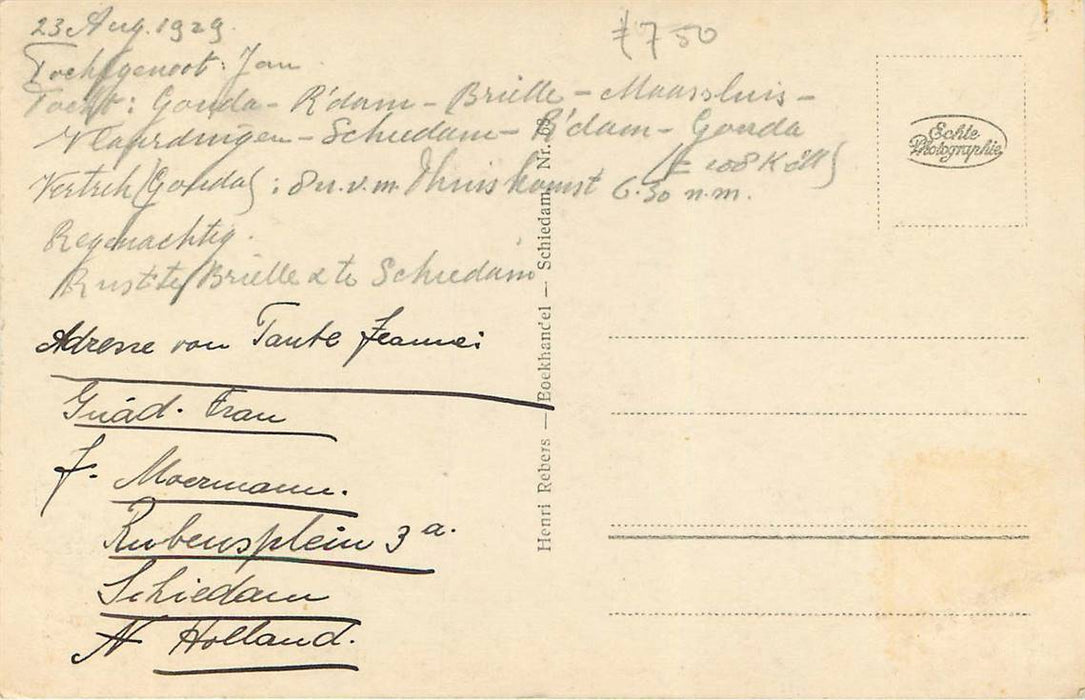 23 Aug. 1929.
ƒ750
Tochtgenoot: Jan
Tocht: Gouda - R'dam - Brielle - Maassluis -
Vlaardingen - Schiedam - R'dam - Gouda
(± 108 K.M)
Vertrek (Gouda): 8 u. v.m. Thuiskomst 6.30 n.m.
Regenachtig.
Rust: te Brielle & te Schiedam
Adresse von Tante Jeannei
Gnäd. Frau
J. Moermann.
Rubensplein 3a.
Schiedam
N Holland.
Henri Rebers — Boekhandel — Schiedam. Nr. 68
Echte
Photographie